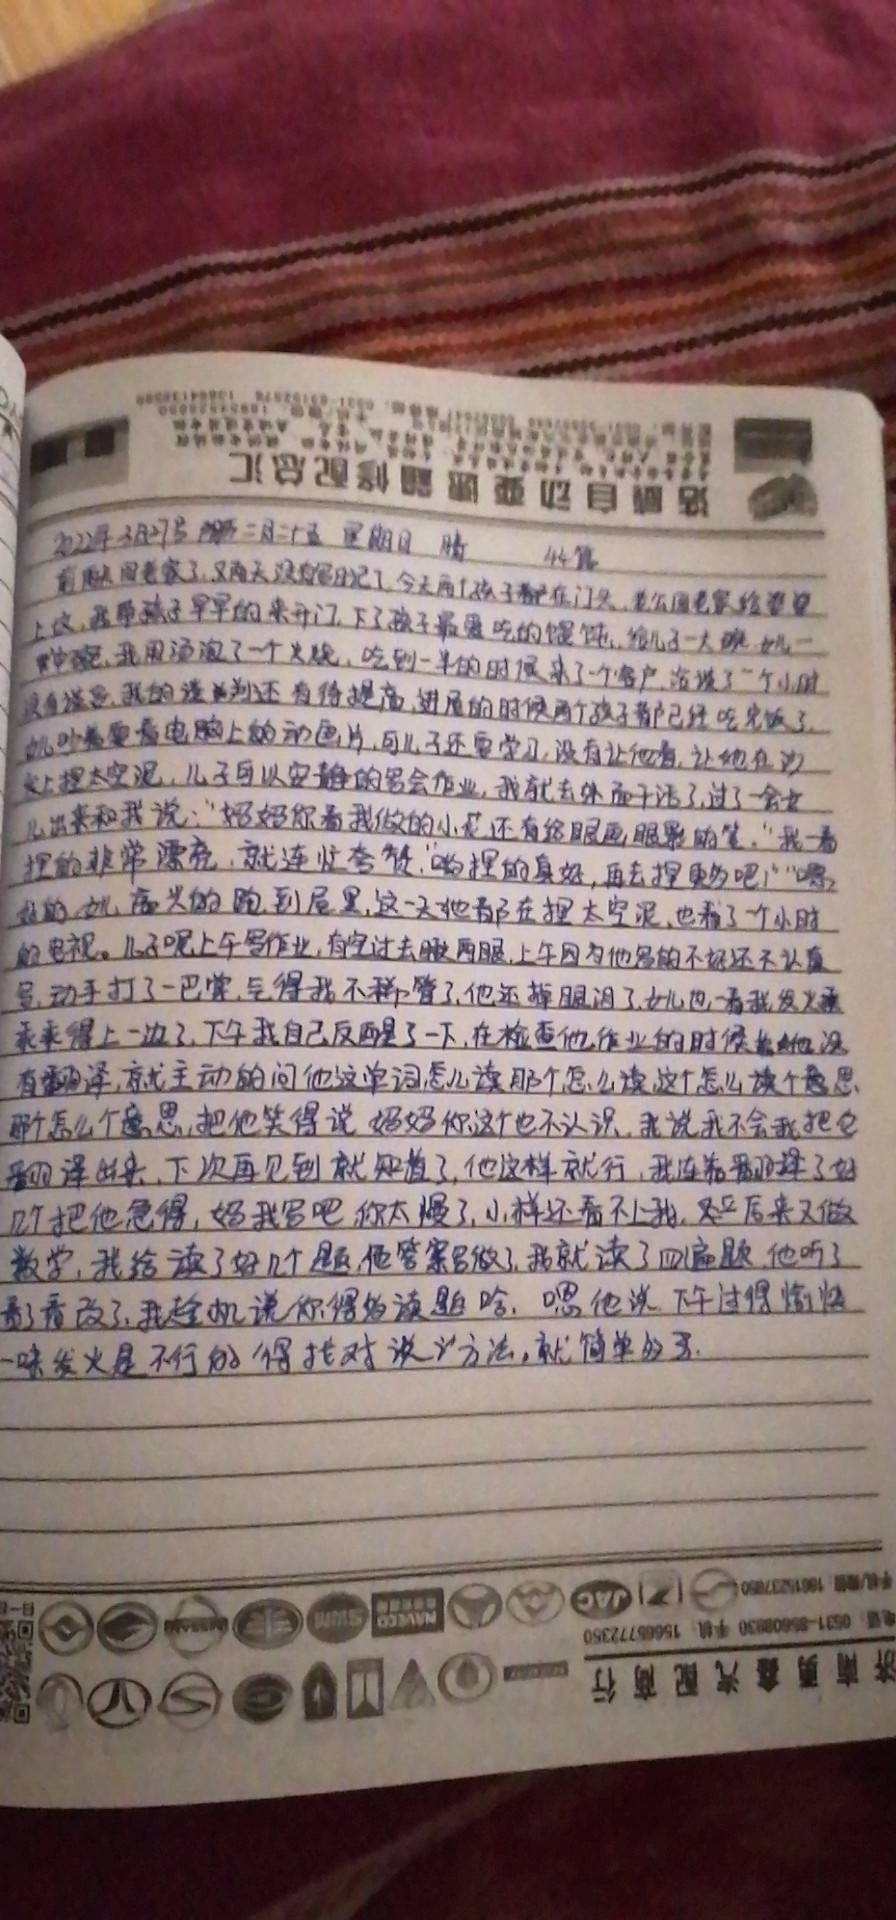 浩顺自动变速器修配总汇
2022年3月27号 阴历二月二十五 星期日 晴 44篇
前两天回老家了,又两天没写日记了,今天两个孩子都在门头,老公回老家给
上坟,我带孩子早早的来开门,下了孩子最爱吃的馄饨,给儿子一大碗,女儿一
碗,我用汤泡了一个火烧,吃到一半的时候来了个客户,洽谈了一个小时
没有谈妥,我的谈判还有待提高,进屋的时候两个孩子都已经吃完饭了,
女儿吵着要看电脑上的动画片,可儿子还要学习,没有让他看,让她在沙
发上捏太空泥,儿子可以安静的写会作业,我就去外面干活了,过了一会女
儿出来和我说:“妈妈你看我做的小花还有给眼画眼影的笔,”我一看
捏的非常漂亮,就连忙夸赞,“哟捏的真好,再去捏更多吧!”“嗯,
好的,女儿高兴的跑到屋里,这一天她都在捏太空泥,也看了一个小时
的电视。儿子呢上午写作业,有空过去瞅两眼,上午因为他写的不好还不认真
写,动手打了一巴掌,气得我不稀管了,他还掉眼泪了,女儿也一看我发火乖
乖乖得上一边了,下午我自己反醒了一下,在检查他作业的时候他没
有翻译,就主动的问他这单词怎么读那个怎么读,这个怎么读个意思
那个怎么个意思,把他笑得说 妈妈你这个也不认识,我说我不会我把它
翻译出来,下次再见到就知道了,他这样就行,我连着翻译了好
几个把他急得,妈我写吧,你太慢了,小样还看不上我,然后后来又做
数学,我给读了好几个题,他答案写做了,我就读了四遍题,他听了
看了看改了,我趁机说你得多读题哈,嗯他说,下午过得愉快
一味发火是不行的得找对说 方法,就简单的多.
手机/微信 18615237850
电话:0531-85608830 手机:15665772350
济南勇鑫汽配商行
JAC
NAVECO
SWM